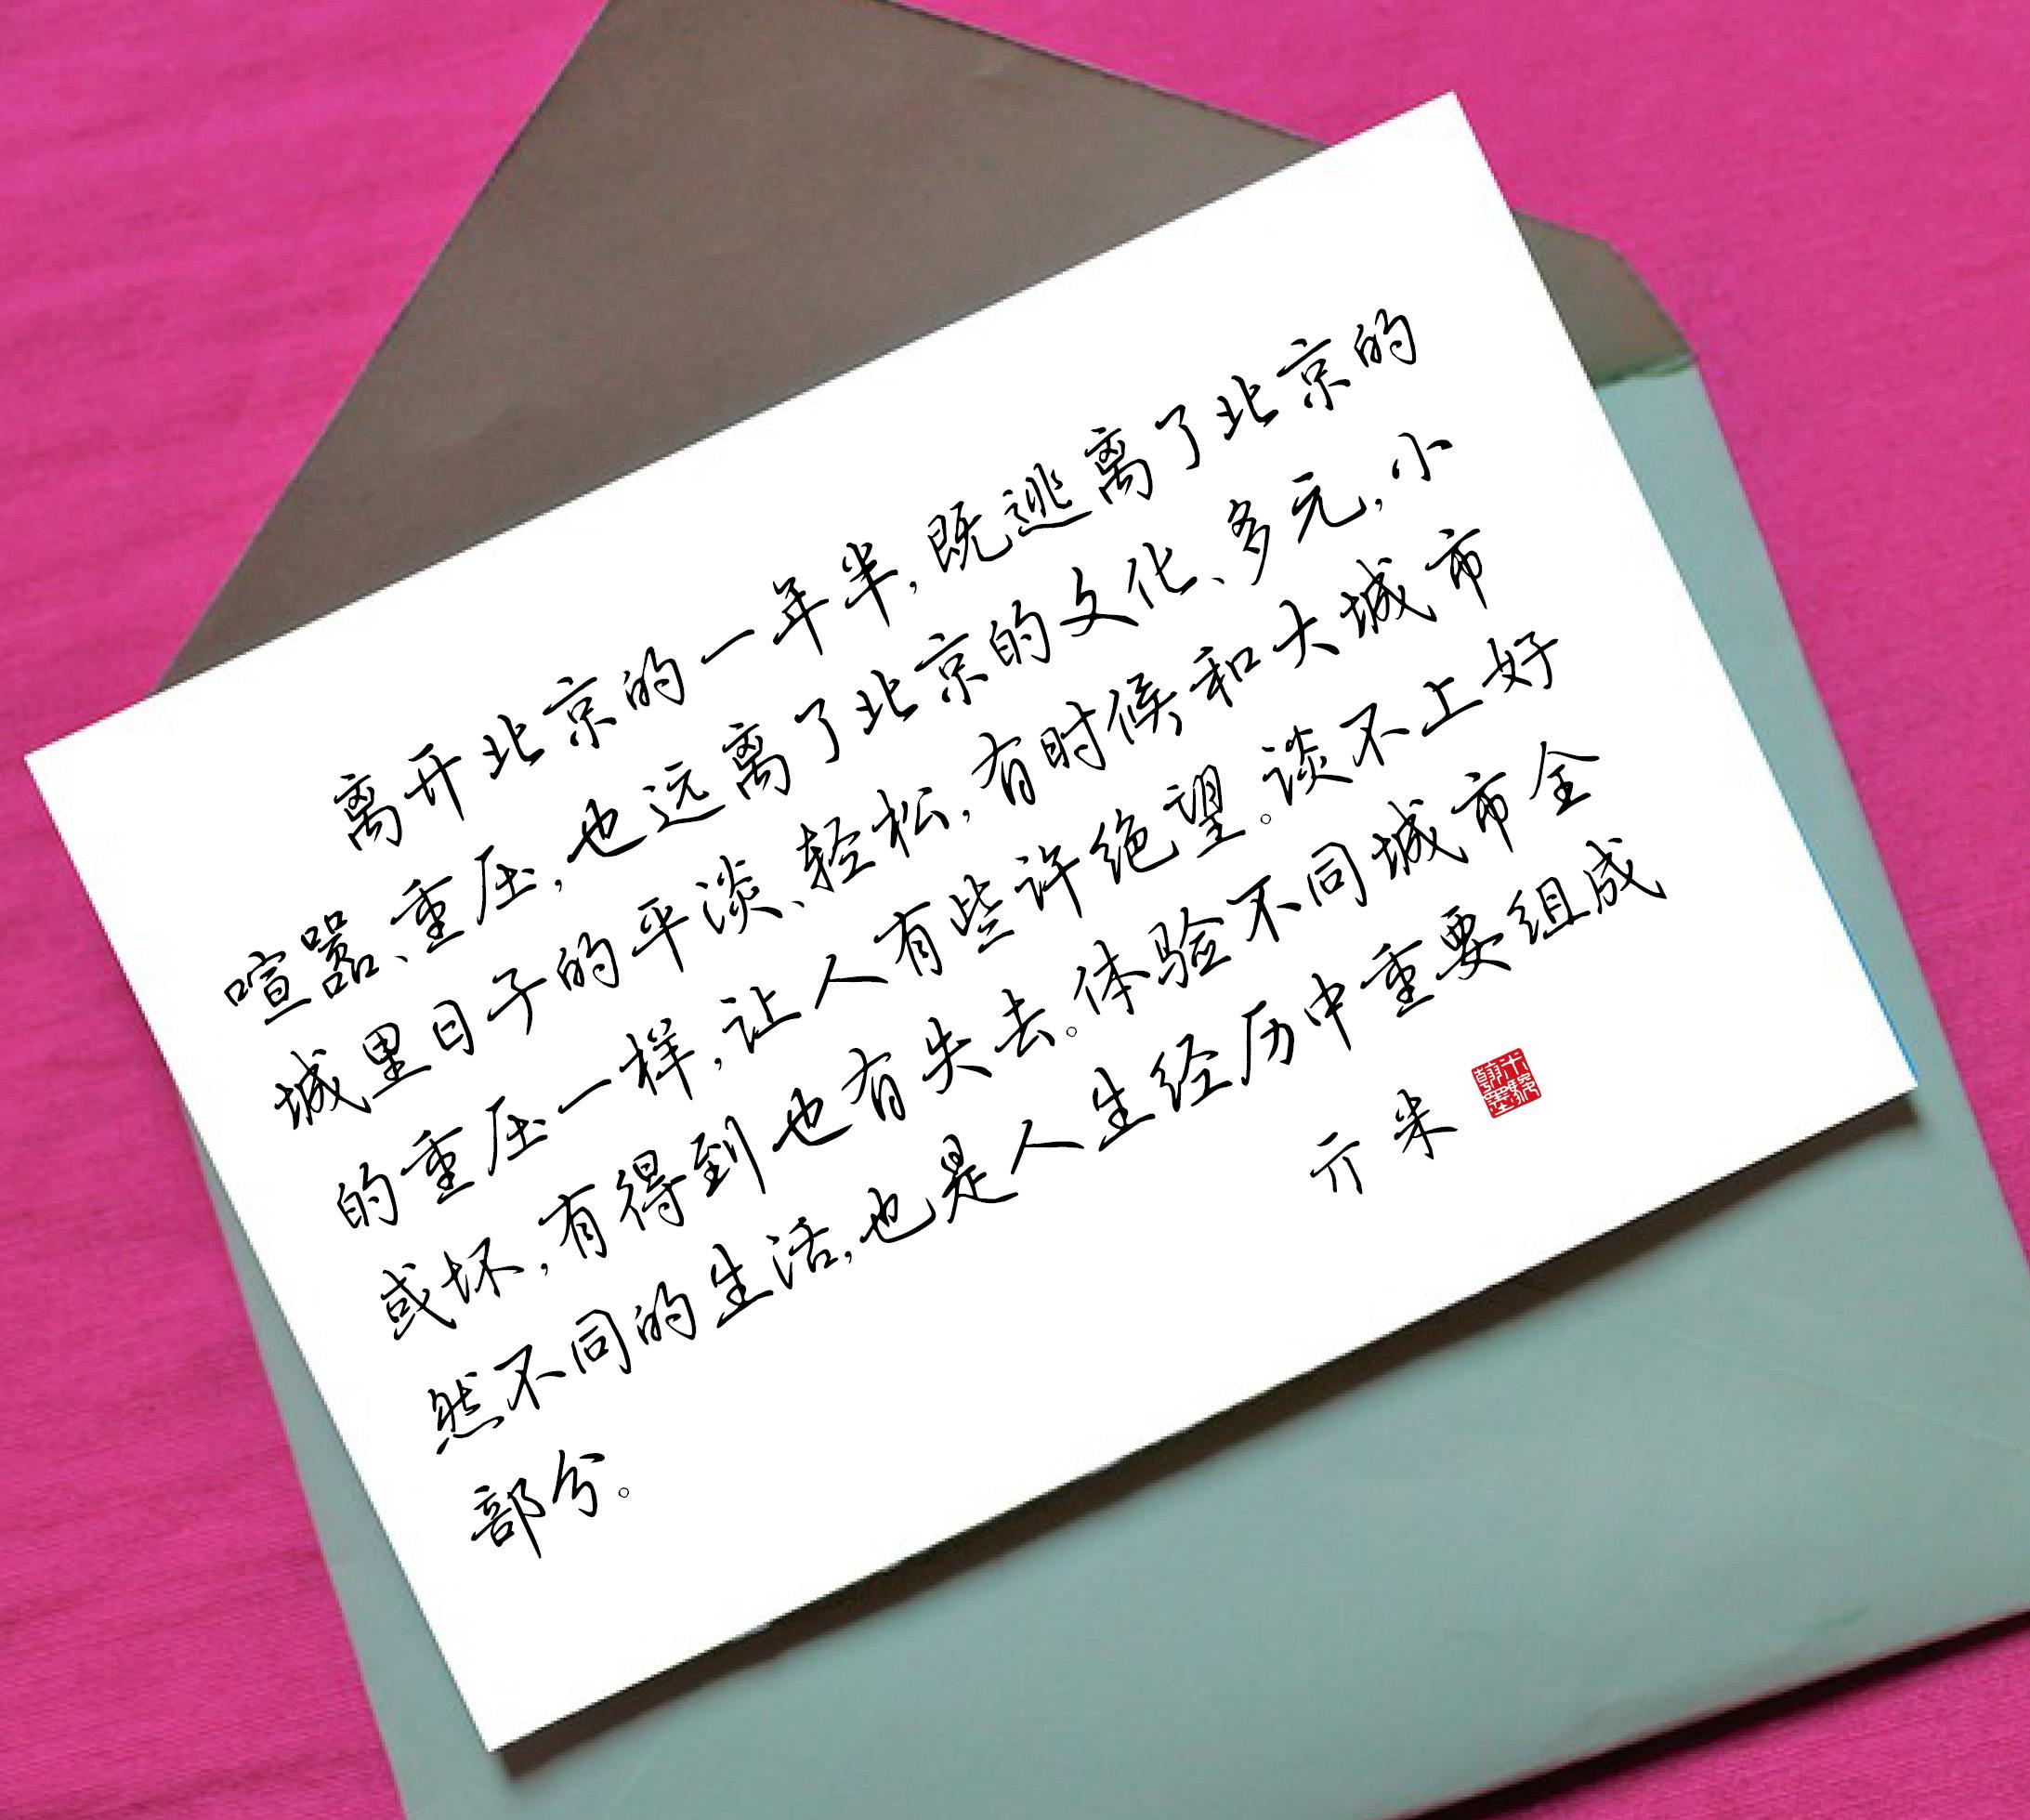 离开北京的一年半，既逃离了北京的
喧嚣、重压，也远离了北京的文化、多元，小
城里日子的平淡、轻松，有时候和大城市
的重压一样，让人有些许绝望。谈不上好
或坏，有得到也有失去。体验不同城市全
然不同的生活，也是人生经历中重要组成
部分。
亓米